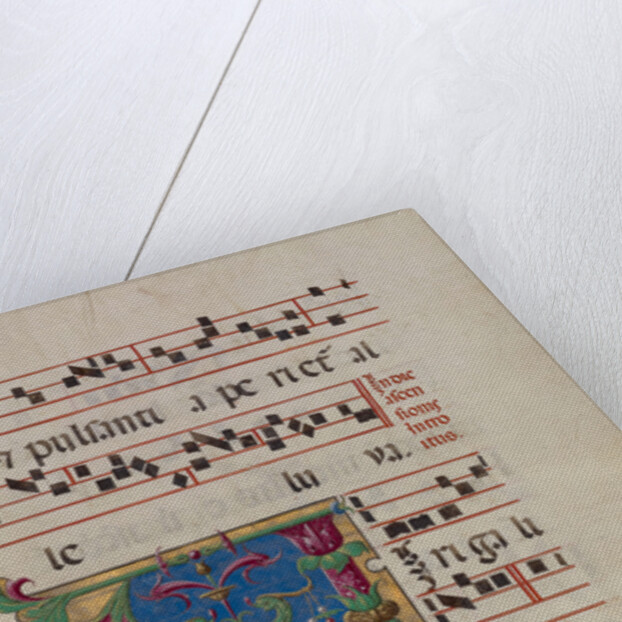 pulsanti a pe riet̃ al
In die
ascen
sionis
Intro
itus.
le lu va.
iri ga li